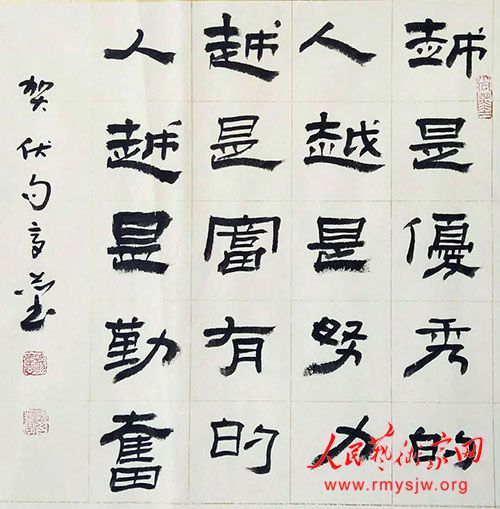 越是優秀的
人越是努力
越是富有的
人越是勤奮
贺伏句
人民艺术家网
www.rmysjw.org